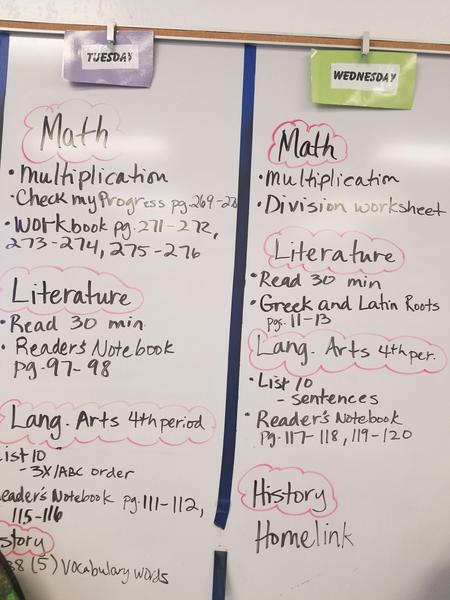 TUESDAY
Math
• multiplication
• Check my Progress pg. 269-
• Workbook pg. 271-272,
273-274, 275-276
Literature
• Read 30 min.
• Reader's Notebook
pg. 97-98
Lang. Arts 4th period
List 10
- 3X/ABC order
eader's Notebook pg. 111-112,
115-116
story
(5) Vocabulary words
WEDNESDAY
Math
• multiplication
• Division worksheet
Literature
• Read 30 min
• Greek and Latin Roots
pgs. 11-13
Lang. Arts 4th per.
• List 10
- sentences
• Reader's Notebook
pg. 117-118, 119-120
History
Homelink